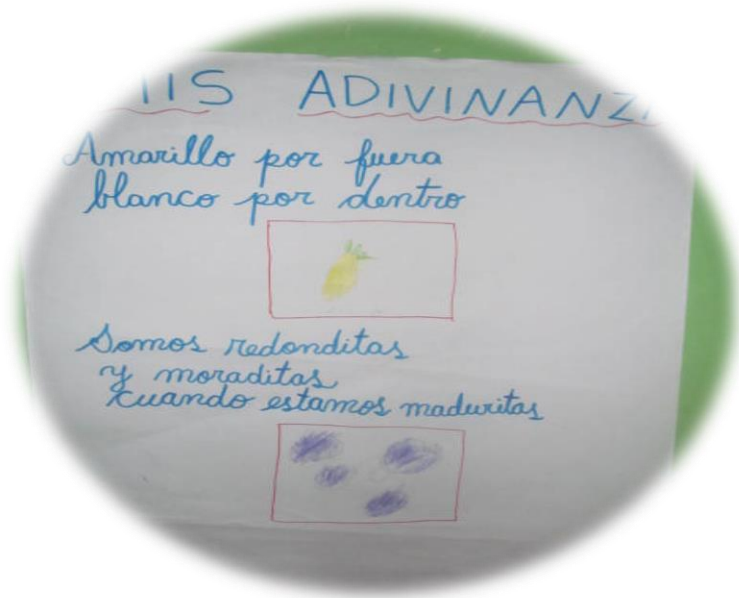 IIS ADIVINANZ
Amarillo por fuera
blanco por dentro
Somos redonditas
y moraditas
cuando estamos maduritas